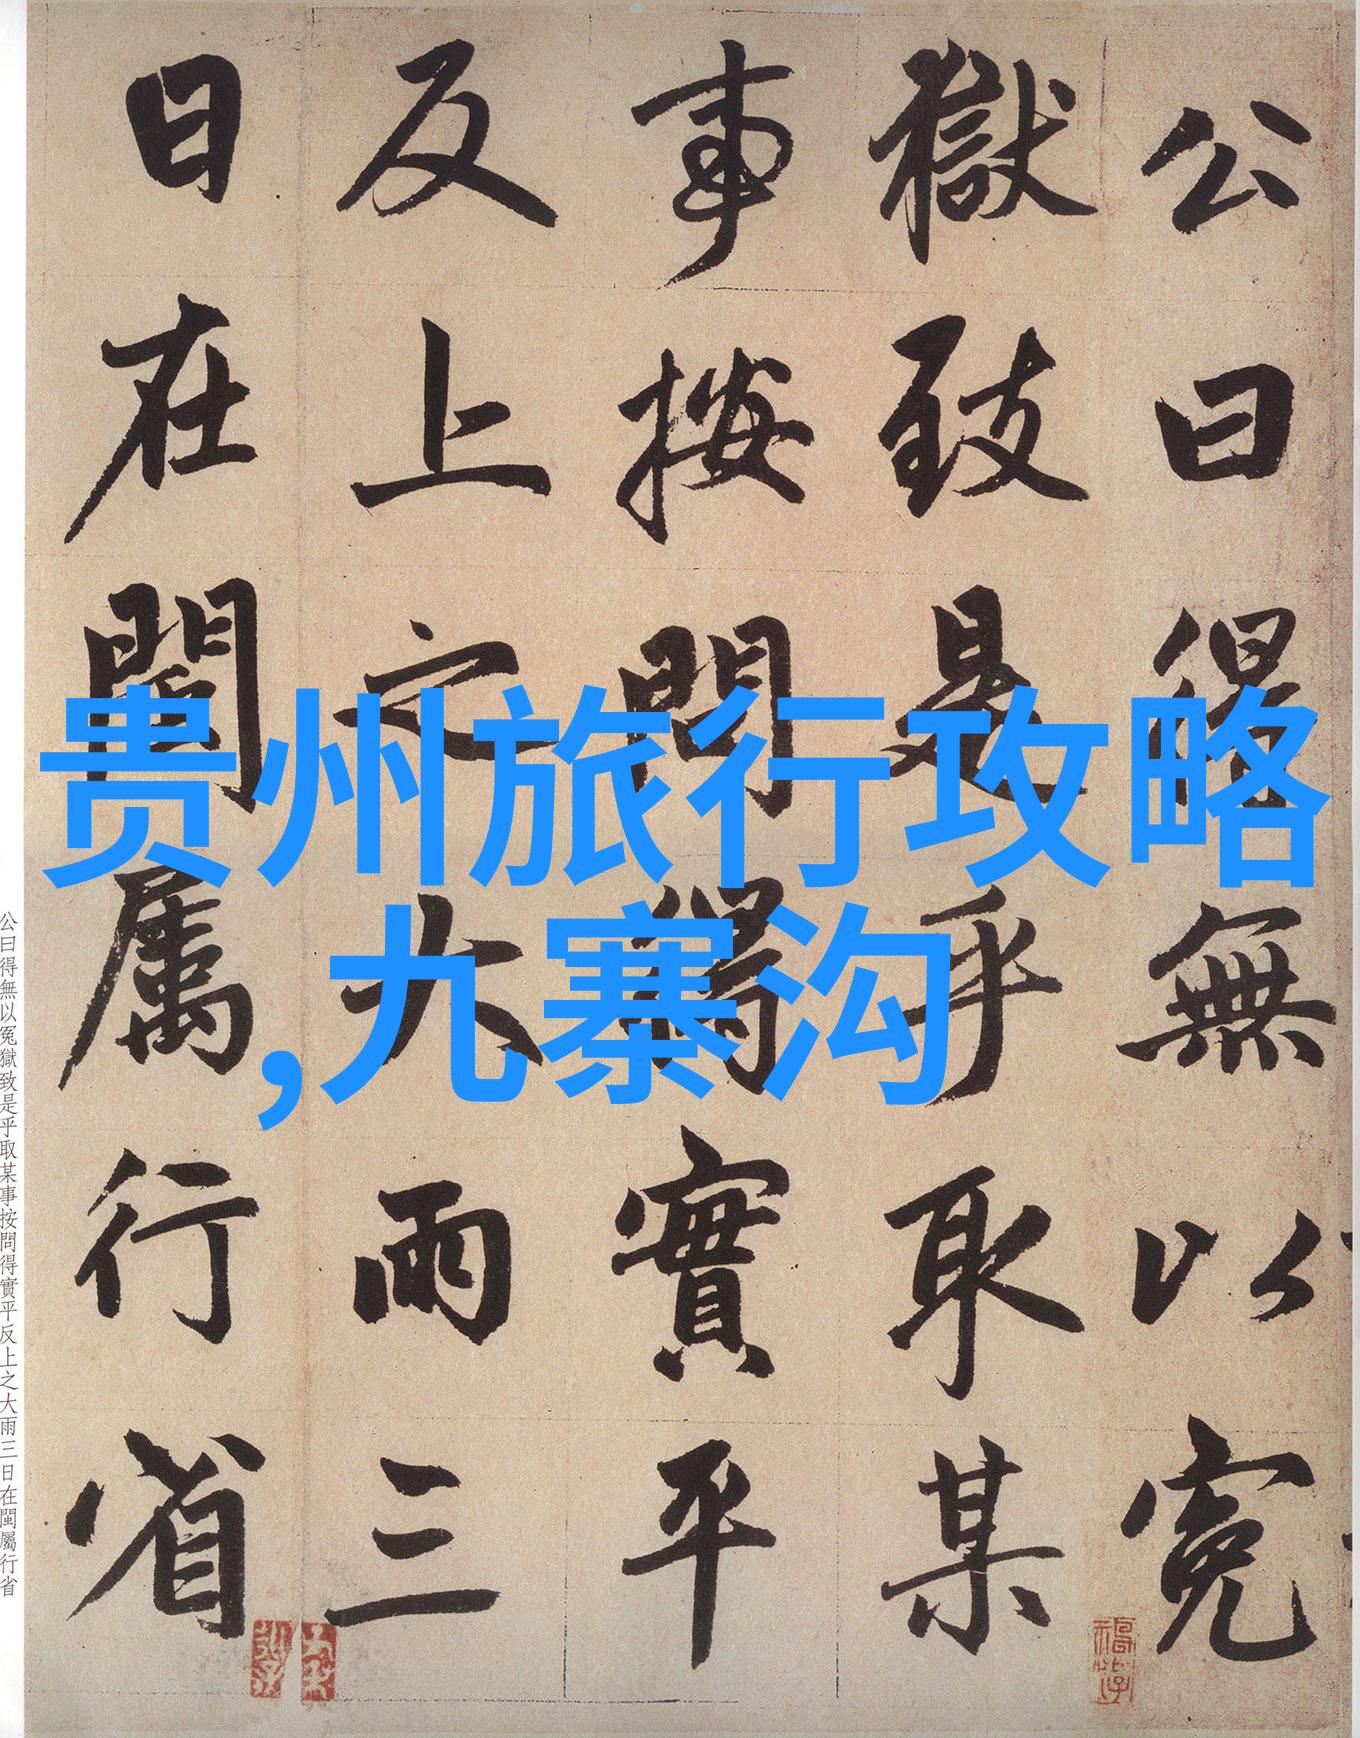 公曰得無以冤
獄致是乎取某
事按問得實平
反上之大雨三
日在閩屬行省
贵州旅行攻略
,九寨沟
公曰得無以冤獄致是乎取某事按問得實平反上之大雨三日在閩屬行省